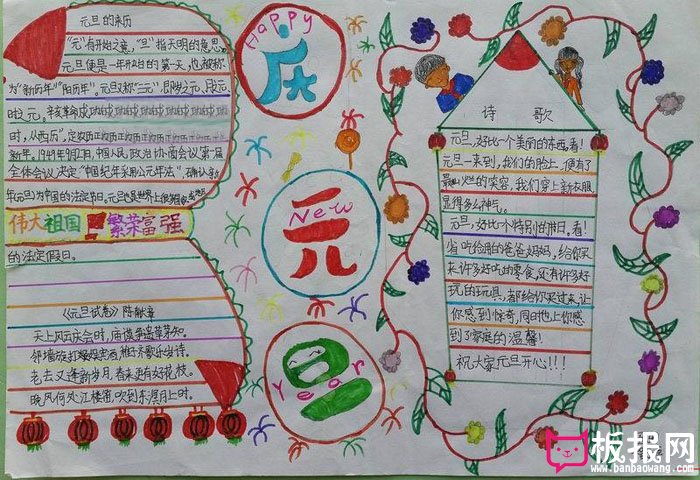 元旦的来历
"元"有开始之意，"旦"指天明的意思
元旦便是一年开始的第一天，也被称
为"新历年""阳历年"。元旦又称"三元"，即岁之元，月之元
时之元，辛亥革命成功
时，从西历"，定
新年，1949年9月27日，中国人民政治协商会议第一届
全体会议决定"中国纪年采用公元年法"，确认
年元旦为中国的法定节日，元旦也是世界上很多国家或地区
伟大祖国 繁荣富强
的法定假日。
《元旦试卷》陈献章
天上风云庆会时，庙谟争遗草茅知。
邻墙旋打娱宾酒，稚子齐歌乐岁诗。
老去又逢新岁月，春来更有好花枝。
晚风何处江楼笛，吹到东溟月上时。
Happy
庆
New
元
Year
旦
诗 歌
元旦，好比一个美丽的东西，看！
元旦一来到，我们的脸上，便有了
最灿烂的笑容，我们穿上新衣服
显得多么神气。
元旦，好比个特别的节日，看！
省吃俭用的爸爸妈妈，给你买
来许多好吃的零食，还有许多好
玩的玩具，都给你买过来，让
你感到惊奇，同时也让你感
到了家庭的温馨！
祝大家元旦开心！！！
板报网
www.banbaowang.com